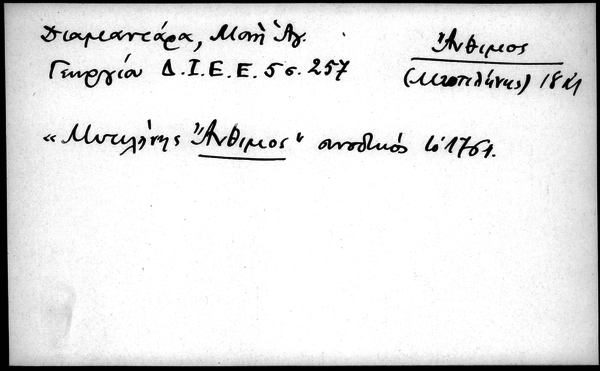 Διαμαντάρα, Μονὴ Ἁγ.
Γεωργίου Δ.Ι.Ε.Ε. 5 σ. 257
Ἄνθιμος
(Μυτιλήνης) 18
"Μυτιλήνης Ἄνθιμος" συνοδικός 1761.